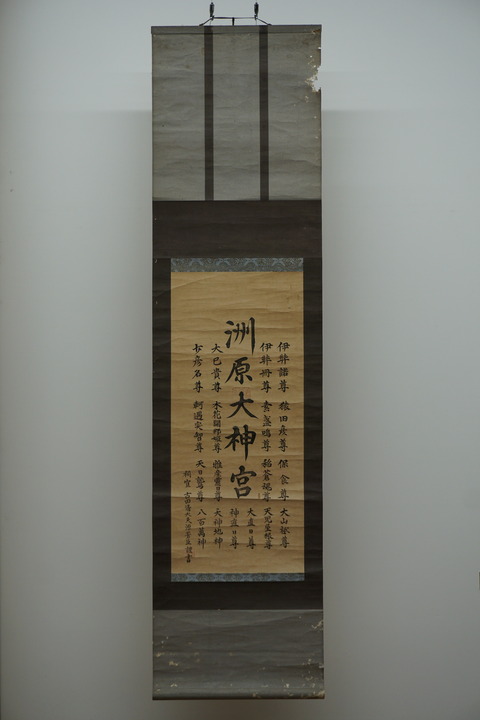 伊弉諾尊 猿田彦尊 保食尊 大山祇尊
伊弉冊尊 素盞嗚尊 稲蒼魂尊 天児屋根尊
洲原大神宮
大直日尊
神直日尊
大己貴尊 木花開耶姫尊 稚産霊日尊 天神地神
少彦名尊 軻遇突智尊 天日鷲尊 八百萬神
祠官
謹書